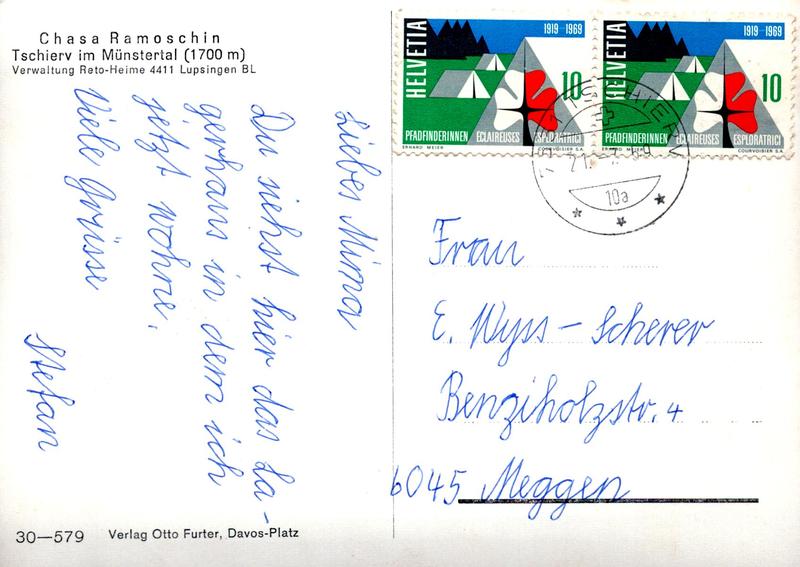 Chasa Ramoschin
Tschierv im Münstertal (1700 m)
Verwaltung Reto-Heime 4411 Lupsingen BL
Liebes Mima
Du siehst hier das La-
gerhaus in dem ich
jetzt wohne.
Viele Grüsse
Stefan
30—579 Verlag Otto Furter, Davos-Platz
HELVETIA
1919-1969
10
PFADFINDERINNEN ECLAIREUSES ESPLORATRICI
ERHARD MEIER COURVOISIER S.A.
HELVETIA
1919-1969
10
PFADFINDERINNEN ECLAIREUSES ESPLORATRICI
COURVOISIER S.A.
10a
Frau
E. Wyss-Scherer
Benziholzstr. 4
6045 Meggen